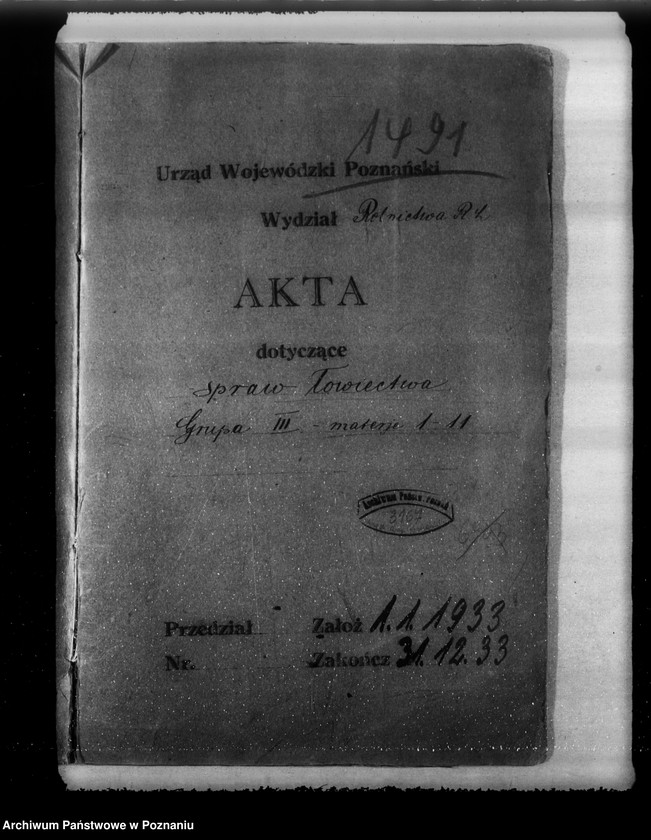 1491
Urząd Wojewódzki Poznański
Wydział Rolnictwa R ł.
AKTA
dotyczące
spraw Łowiectwa
Grupa III - materje 1-11
Archiwum Państw.
3167
Przedział Założ 1.1.1933
Nr. Zakończ 31.12.33
Archiwum Państwowe w Poznaniu